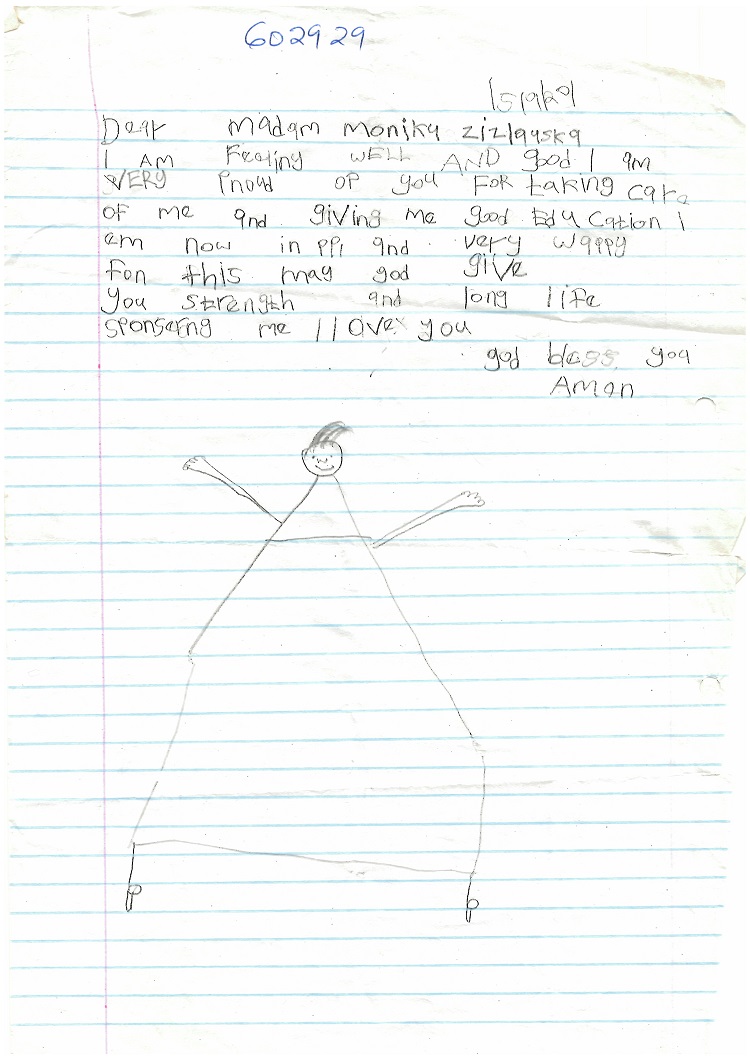 602929
15/9/201
Dear madam monika zizlayska
I AM Feeling WELL AND good I am
VERY Proud OF you FOR taking care
of me and giving me good Education I
am now in PP1 and very wappy
For this may god give
you strength and long life
sponserng me I love you
god bless you
Aman